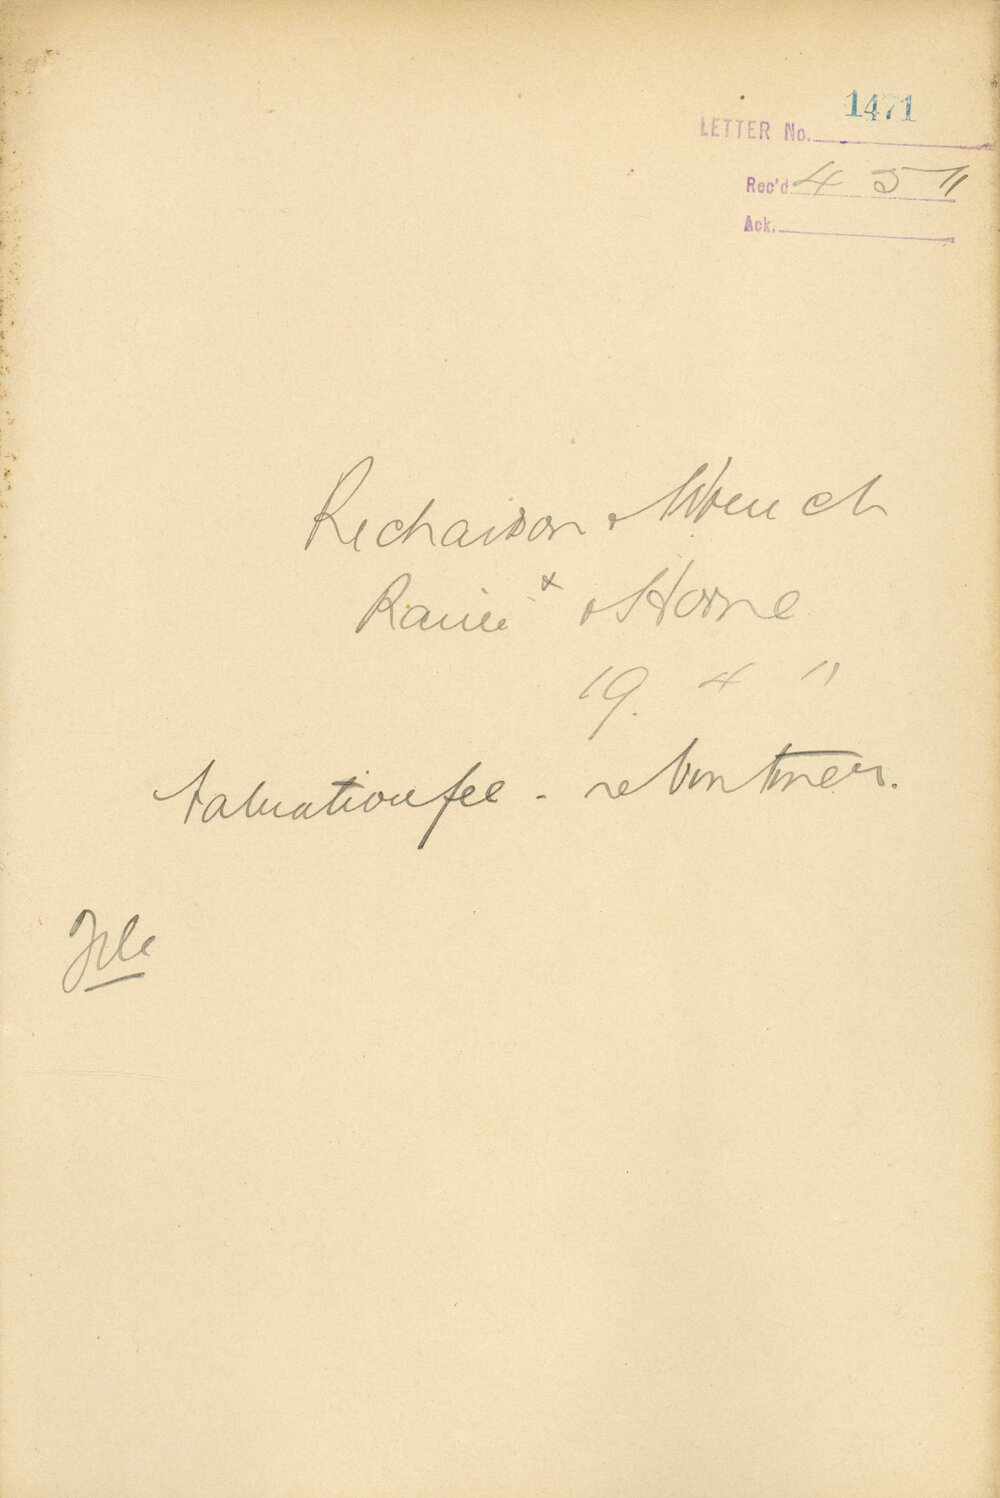 1471
LETTER No.
Rec'd 4 5 11
Ack.
Richardson & Wrench
Raine & Horne
19. 4 11
Valuation fee - re
File